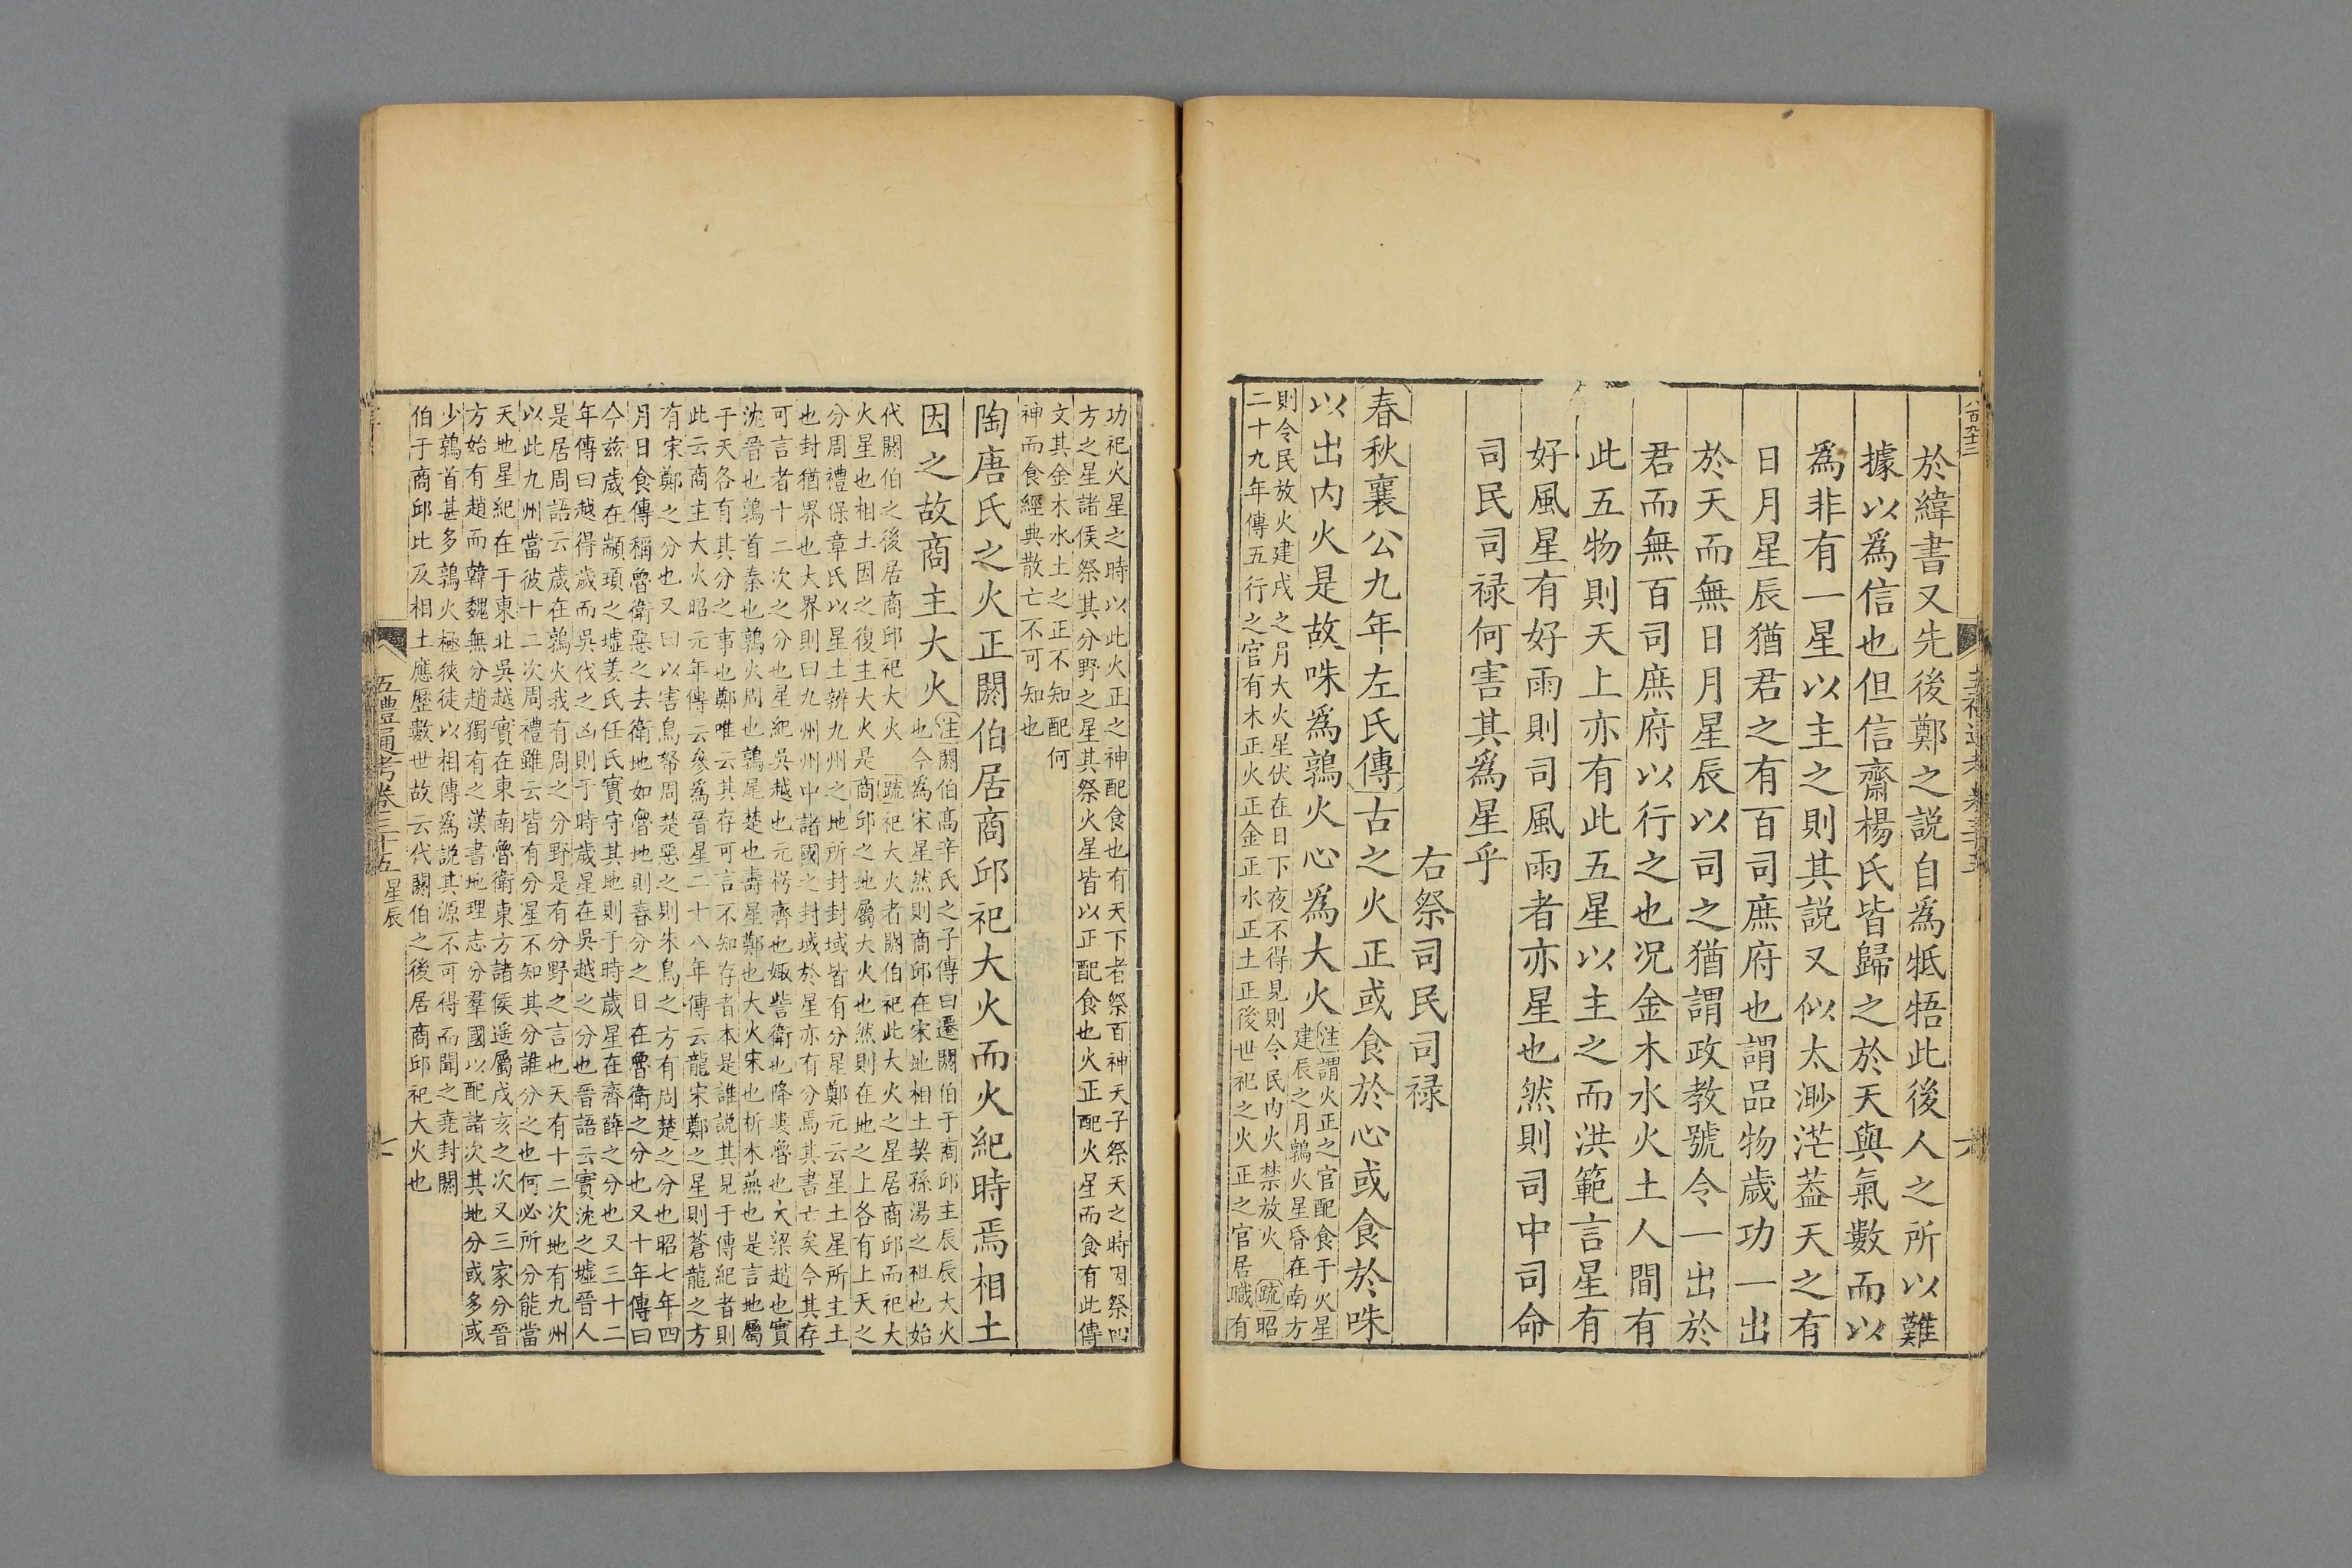 八百九十三
於緯書又先後鄭之説自為牴牾此後人之所以難
據以爲信也但信齋楊氏皆歸之於天與氣數而以
爲非有一星以主之則其説又似太渺茫蓋天之有
日月星辰猶君之有百司庶府也謂品物歲功一出
於天而無日月星辰以司之猶謂政教號令一出於
君而無百司庶府以行之也况金木水火土人間有
此五物則天上亦有此五星以主之而洪範言星有
好風星有好雨則司風雨者亦星也然則司中司命
司民司祿何害其爲星乎
右祭司民司祿
春秋襄公九年左氏傳古之火正或食於心或食於咮
以出内火是故咮爲鶉火心爲大火
注謂火正之官配食于火星
建辰之月鶉火星昏在南方
則令民放火建戌之月大火星伏在日下夜不得見則令民内火禁放火 疏昭
二十九年傳五行之官有木正火正金正水正土正後世祀之火正之官居職有
功祀火星之時以此火正之神配食也有天下者祭百神天子祭天之時因祭四
方之星諸侯祭其分野之星其祭火星皆以正配食也火正配火星而食有此傳
文其金木水土之正不知配何
神而食經典散亡不可知也
陶唐氏之火正閼伯居商邱祀大火而火紀時焉相土
因之故商主大火
注閼伯高辛氏之子傳曰遷閼伯于商邱主辰辰大火
也今為宋星然則商邱在宋地相土契孫湯之祖也始
代閼伯之後居商邱祀大火 疏祀大火者閼伯祀此大火之星居商邱而祀大
火星也相土因之復主大火是商邱之地屬大火也然則在地之上各有上天之
分周禮保章氏以星土辨九州之地所封封域皆有分星鄭元云星土星所主土
也封猶界也大界則曰九州州中諸國之封域於星亦有分焉其書亡矣今其存
可言者十二次之分也星紀吳越也元枵齊也娵訾衛也降婁魯也大梁趙也實
沈晉也鶉首秦也鶉火周也鶉尾楚也壽星鄭也大火宋也析木燕也是言地屬
于天各有其分之事也鄭唯云其存可言不知存者本是誰説其見于傳紀者則
此云商主大火昭元年傳云參爲晉星二十八年傳云龍宋鄭之星則蒼龍之方
有宋鄭之分也又曰以害鳥帑周楚惡之則朱鳥之方有周楚之分也昭七年四
月日食傳稱魯衛惡之去衛地如魯地則春分之日在魯衛之分也又十年傳曰
今茲歲在顓頊之墟姜氏任氏實守其地則于時歲星在齊薛之分也又三十二
年傳曰越得歲而吳伐之凶則于時歲星在吳越之分也晉語云實沈之墟晉人
是居周語云歲在鶉火我有周之分野是有分野之言也天有十二次地有九州
以此九州當彼十二次周禮雖云皆有分星不知其分誰分之也何必所分能當
天地星紀在于東北吳越實在東南魯衛東方諸侯遥屬戌亥之次又三家分晉
方始有趙而韓魏無分趙獨有之漢書地理志分羣國以配諸次其地分或多或
少鶉首甚多鶉火極狹徒以相傳爲説其源不可得而聞之堯封閼
伯于商邱比及相土應歷數世故云代閼伯之後居商邱祀大火也
五禮通考卷三十五 星辰